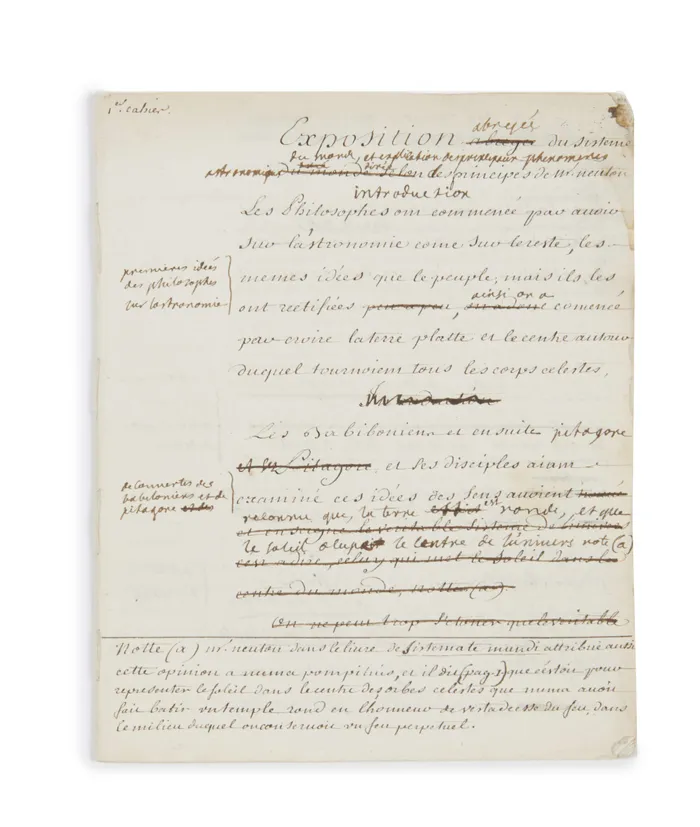 1er cahier.
abregée
Exposition abregée du sisteme
du monde, et explication des principaux phenomenes
astronomiques tirée des principes de mr. neuton
introduction
Les Philosophes ont commencé par avoir
sur l'astronomie come sur le reste, les
premieres idées
des philosophes
sur l'astronomie
memes idées que le peuple, mais ils les
ont rectifiées peu a peu, ainsi on a comencé
par croire la terre platte et le centre autour
duquel tournoient tous les corps celestes,
Les Babiloniens et ensuite pitagore
et Pitagore et ses disciples aiant
decouvertes des
babiloniens et de
pitagore
examiné ces idées des sens avoient
reconnu que, la terre est ronde, et que
et enseigné le veritable sisteme de l'univers
le soleil occupoit le centre de l'univers note (a)
c'est a dire, celuy qui met le soleil dans le
centre du monde, notte (a).
on ne peut trop s'etoner que le veritable
Notte (a) mr. neuton dans le livre de sistemate mundi attribue aussi
cette opinion a numa pompilius, et il dit (pag 1) que c'étoit pour
representer le soleil dans le centre des orbes celestes que numa avoit
fait batir un temple rond en l'honneur de vesta déesse du feu, dans
le milieu duquel on conservoit un feu perpetuel.